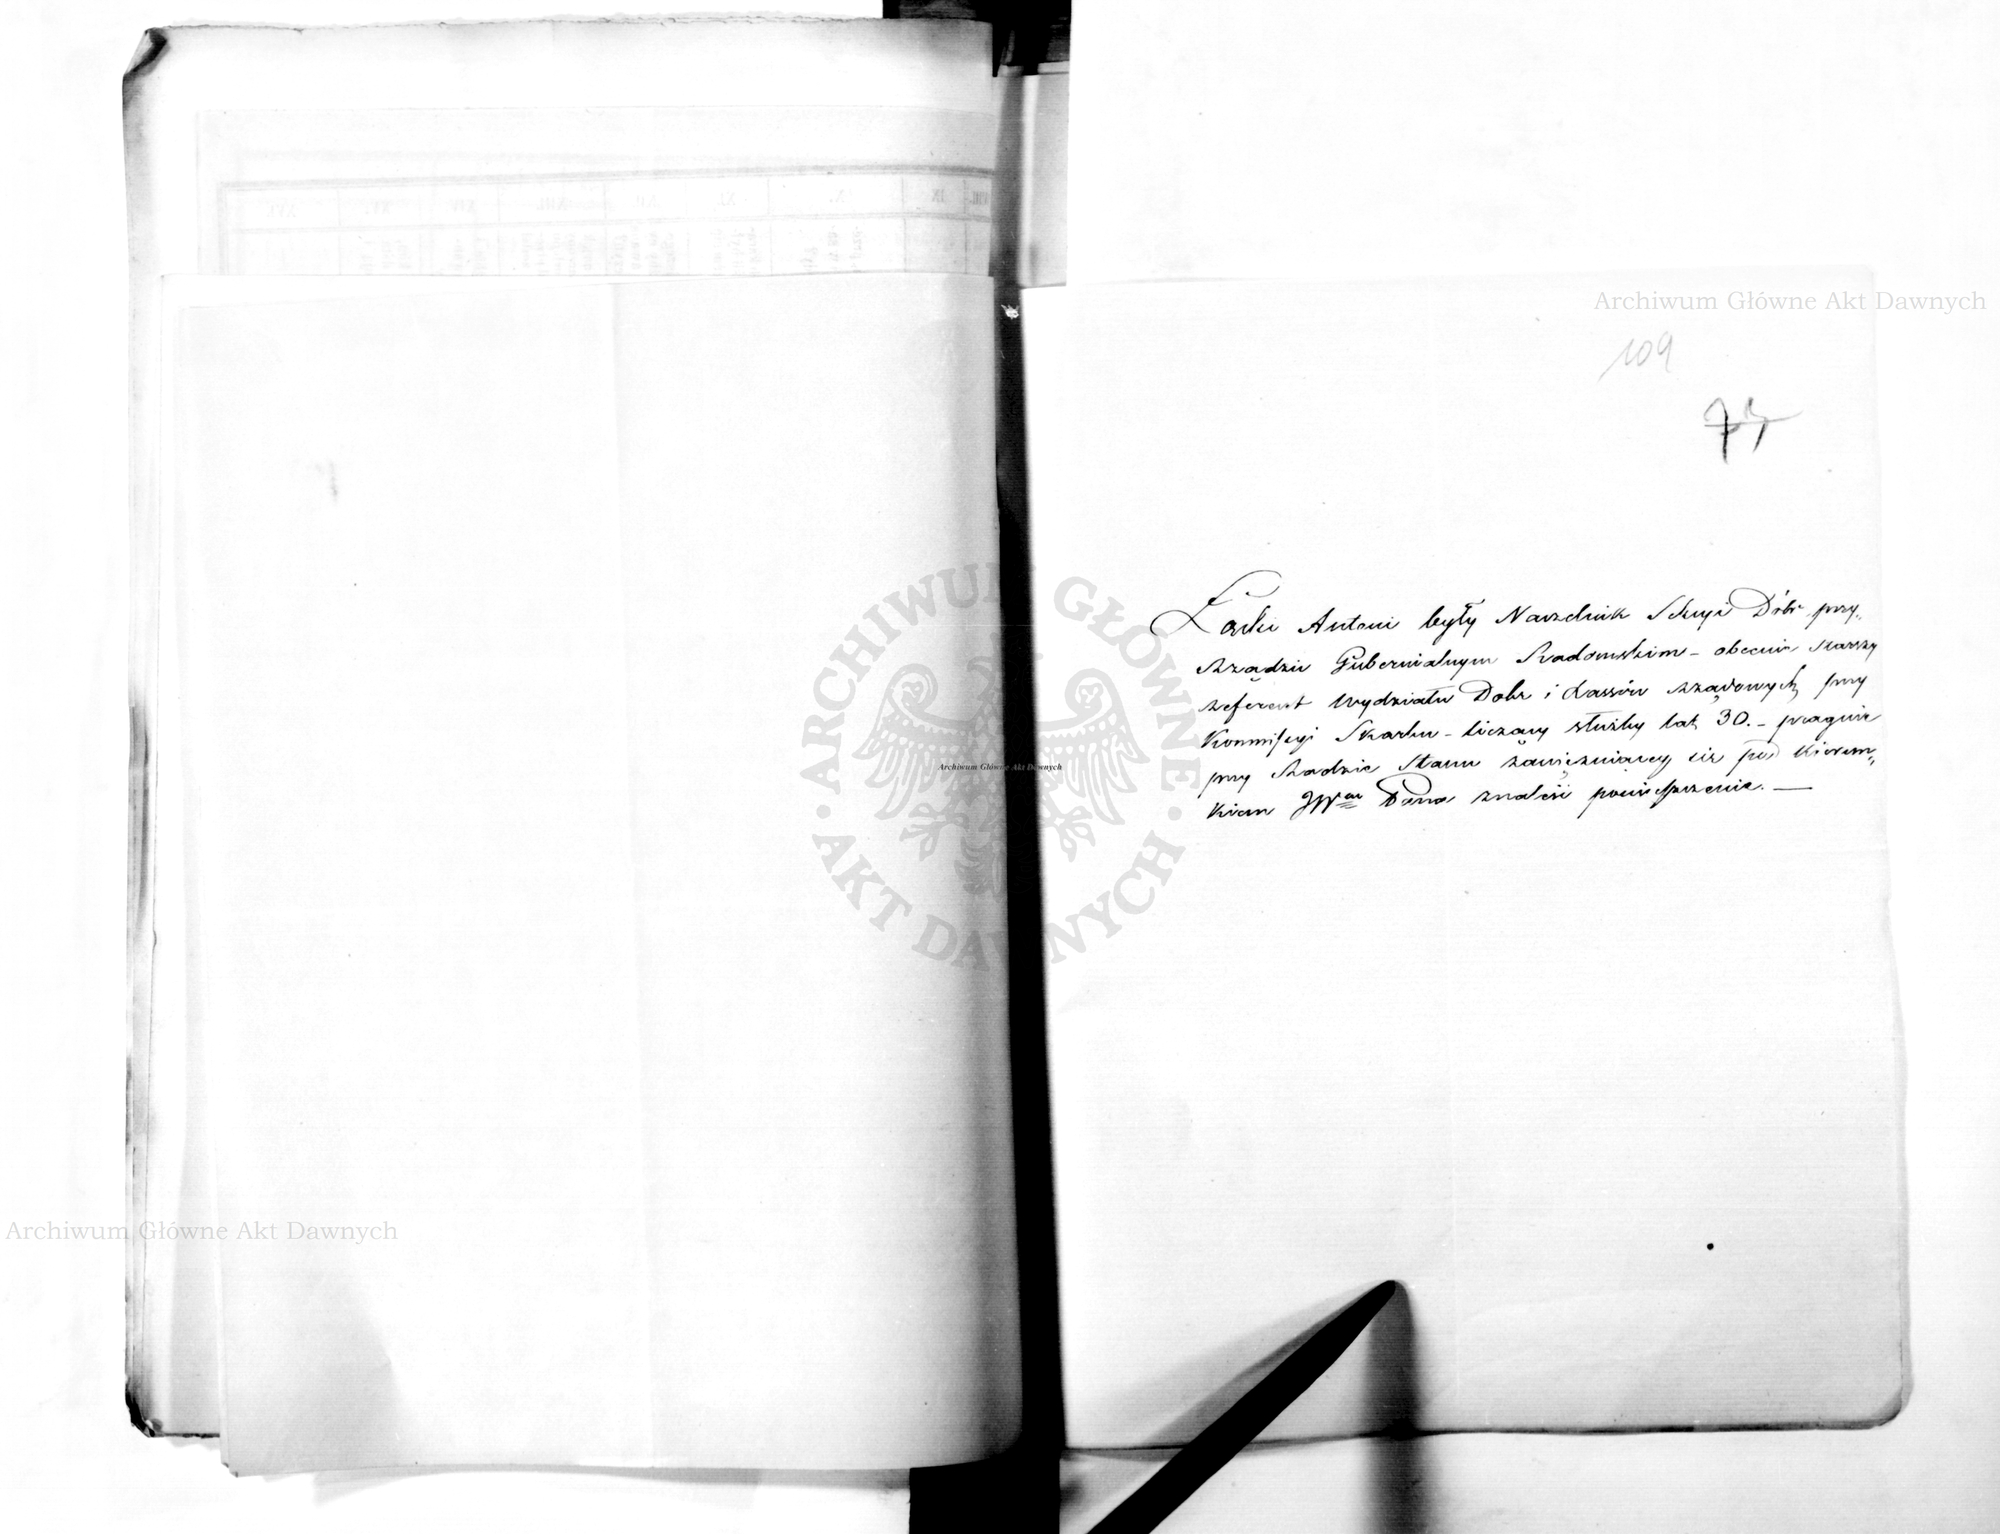 Archiwum Główne Akt Dawnych
109
73
Antoni były Naczelnik Sekcyi Dóbr przy
Rządzie Gubernialnym Radomskim – obecnie starszy
referent Wydziału Dóbr i Lassów rządowych przy
Kommissyi Skarbu – liczący służby lat 30. – pragnie
przy Radzie Stanu zawięzuiącey się pod kierun„
kiem JW Pana znaleść pomieszczenie. —
ARCHIWUM GŁÓWNE AKT DAWNYCH
Archiwum Główne Akt Dawnych
Archiwum Główne Akt Dawnych